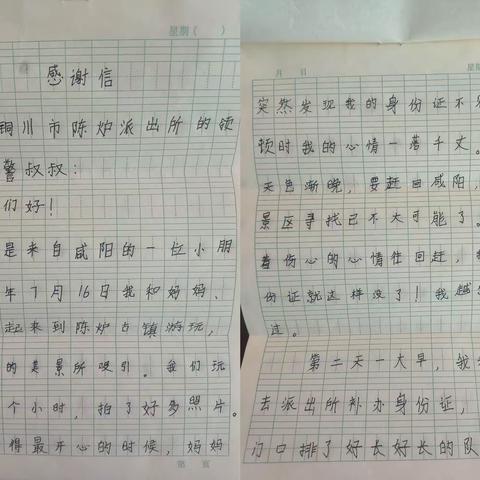 星期( )
感谢信
铜川市陈炉派出所的领
警叔叔:
们好!
是来自咸阳的一位小朋
年7月16日我和妈妈、
起来到陈炉古镇游玩,
的美景所吸引。我们玩
个小时,拍了好多照片。
得最开心的时候,妈妈
第 页
月 日 星期
突然发现我的身份证不
顿时我的心情一落千丈。
天色渐晚,要赶回咸阳,
景区寻找已不大可能了。
着伤心的心情往回赶,我
份证就这样没了!我越
过。
第二天一大早,我
去派出所补办身份证,
门口排了好长好长的队